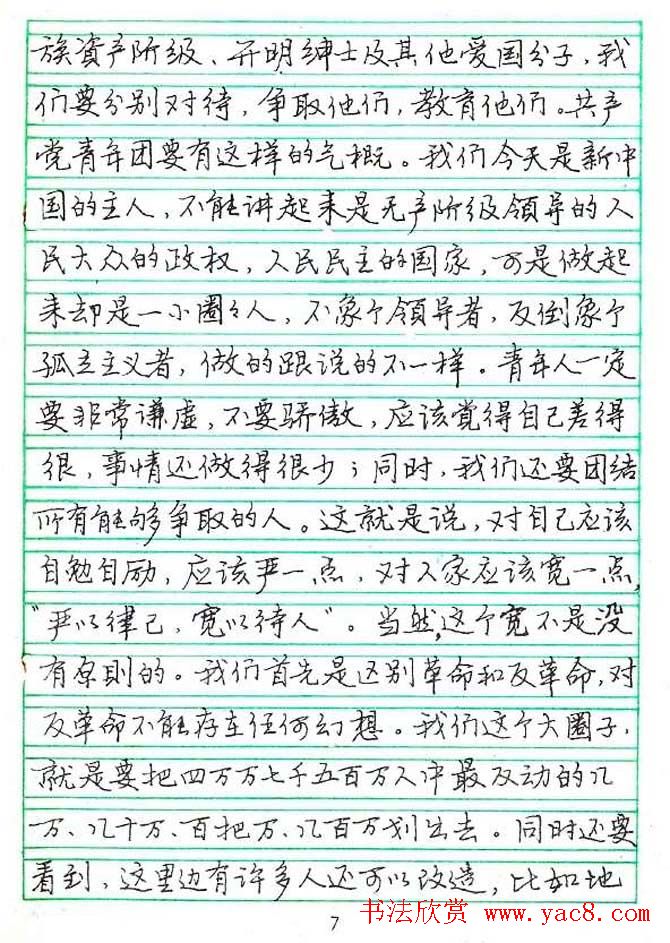 族資产阶级、开明绅士及其他爱国分子，我
们要分别对待，争取他们，教育他们。共产
党青年团要有这样的气概。我们今天是新中
国的主人，不能讲起来是无产阶级领导的人
民大众的政权，人民民主的国家，可是做起
来却是一小圈々人，不象个领导者，反倒象个
孤立主义者，做的跟说的不一样。青年人一定
要非常谦虚，不要骄傲，应该觉得自己差得
很，事情还做得很少；同时，我们还要团结
所有能够争取的人。这就是说，对自己应该
自勉自励，应该严一点，对人家应该宽一点，
“严以律己，宽以待人”。当然，这个宽不是没
有原則的。我们首先是区别革命和反革命，对
反革命不能存在任何幻想。我们这个大圈子，
就是要把四万万七千五百万人中最反动的几
万、几十万、百把万、几百万划出去。同时还要
看到，这里边有许多人还可以改造，比如地
7
书法欣赏 www.yac8.com